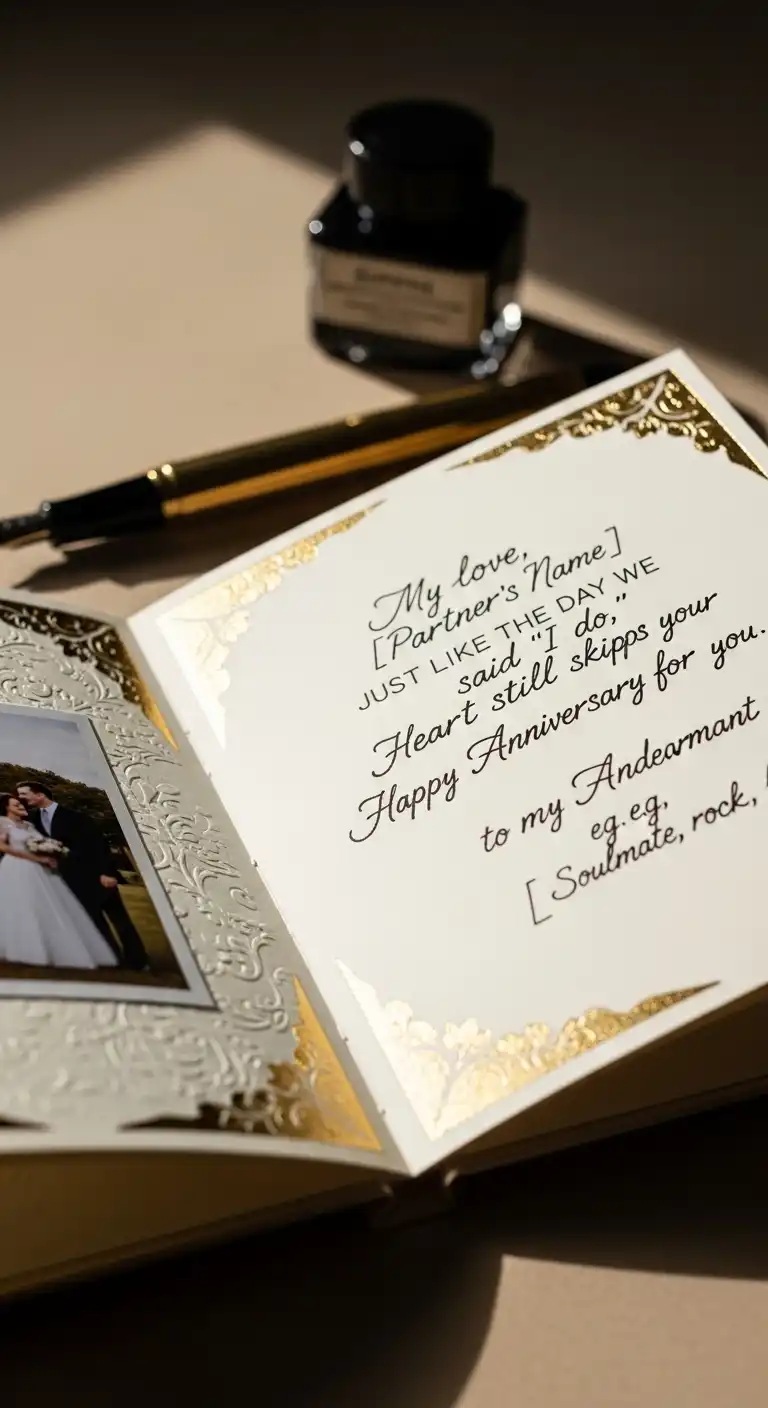 My love,
[Partner's Name]
JUST LIKE THE DAY WE
said "I do,"
Heart still skipps your
Happy Anniversary for you.
to my Andearmant
eg.eg,
[ Soulmate, rock,